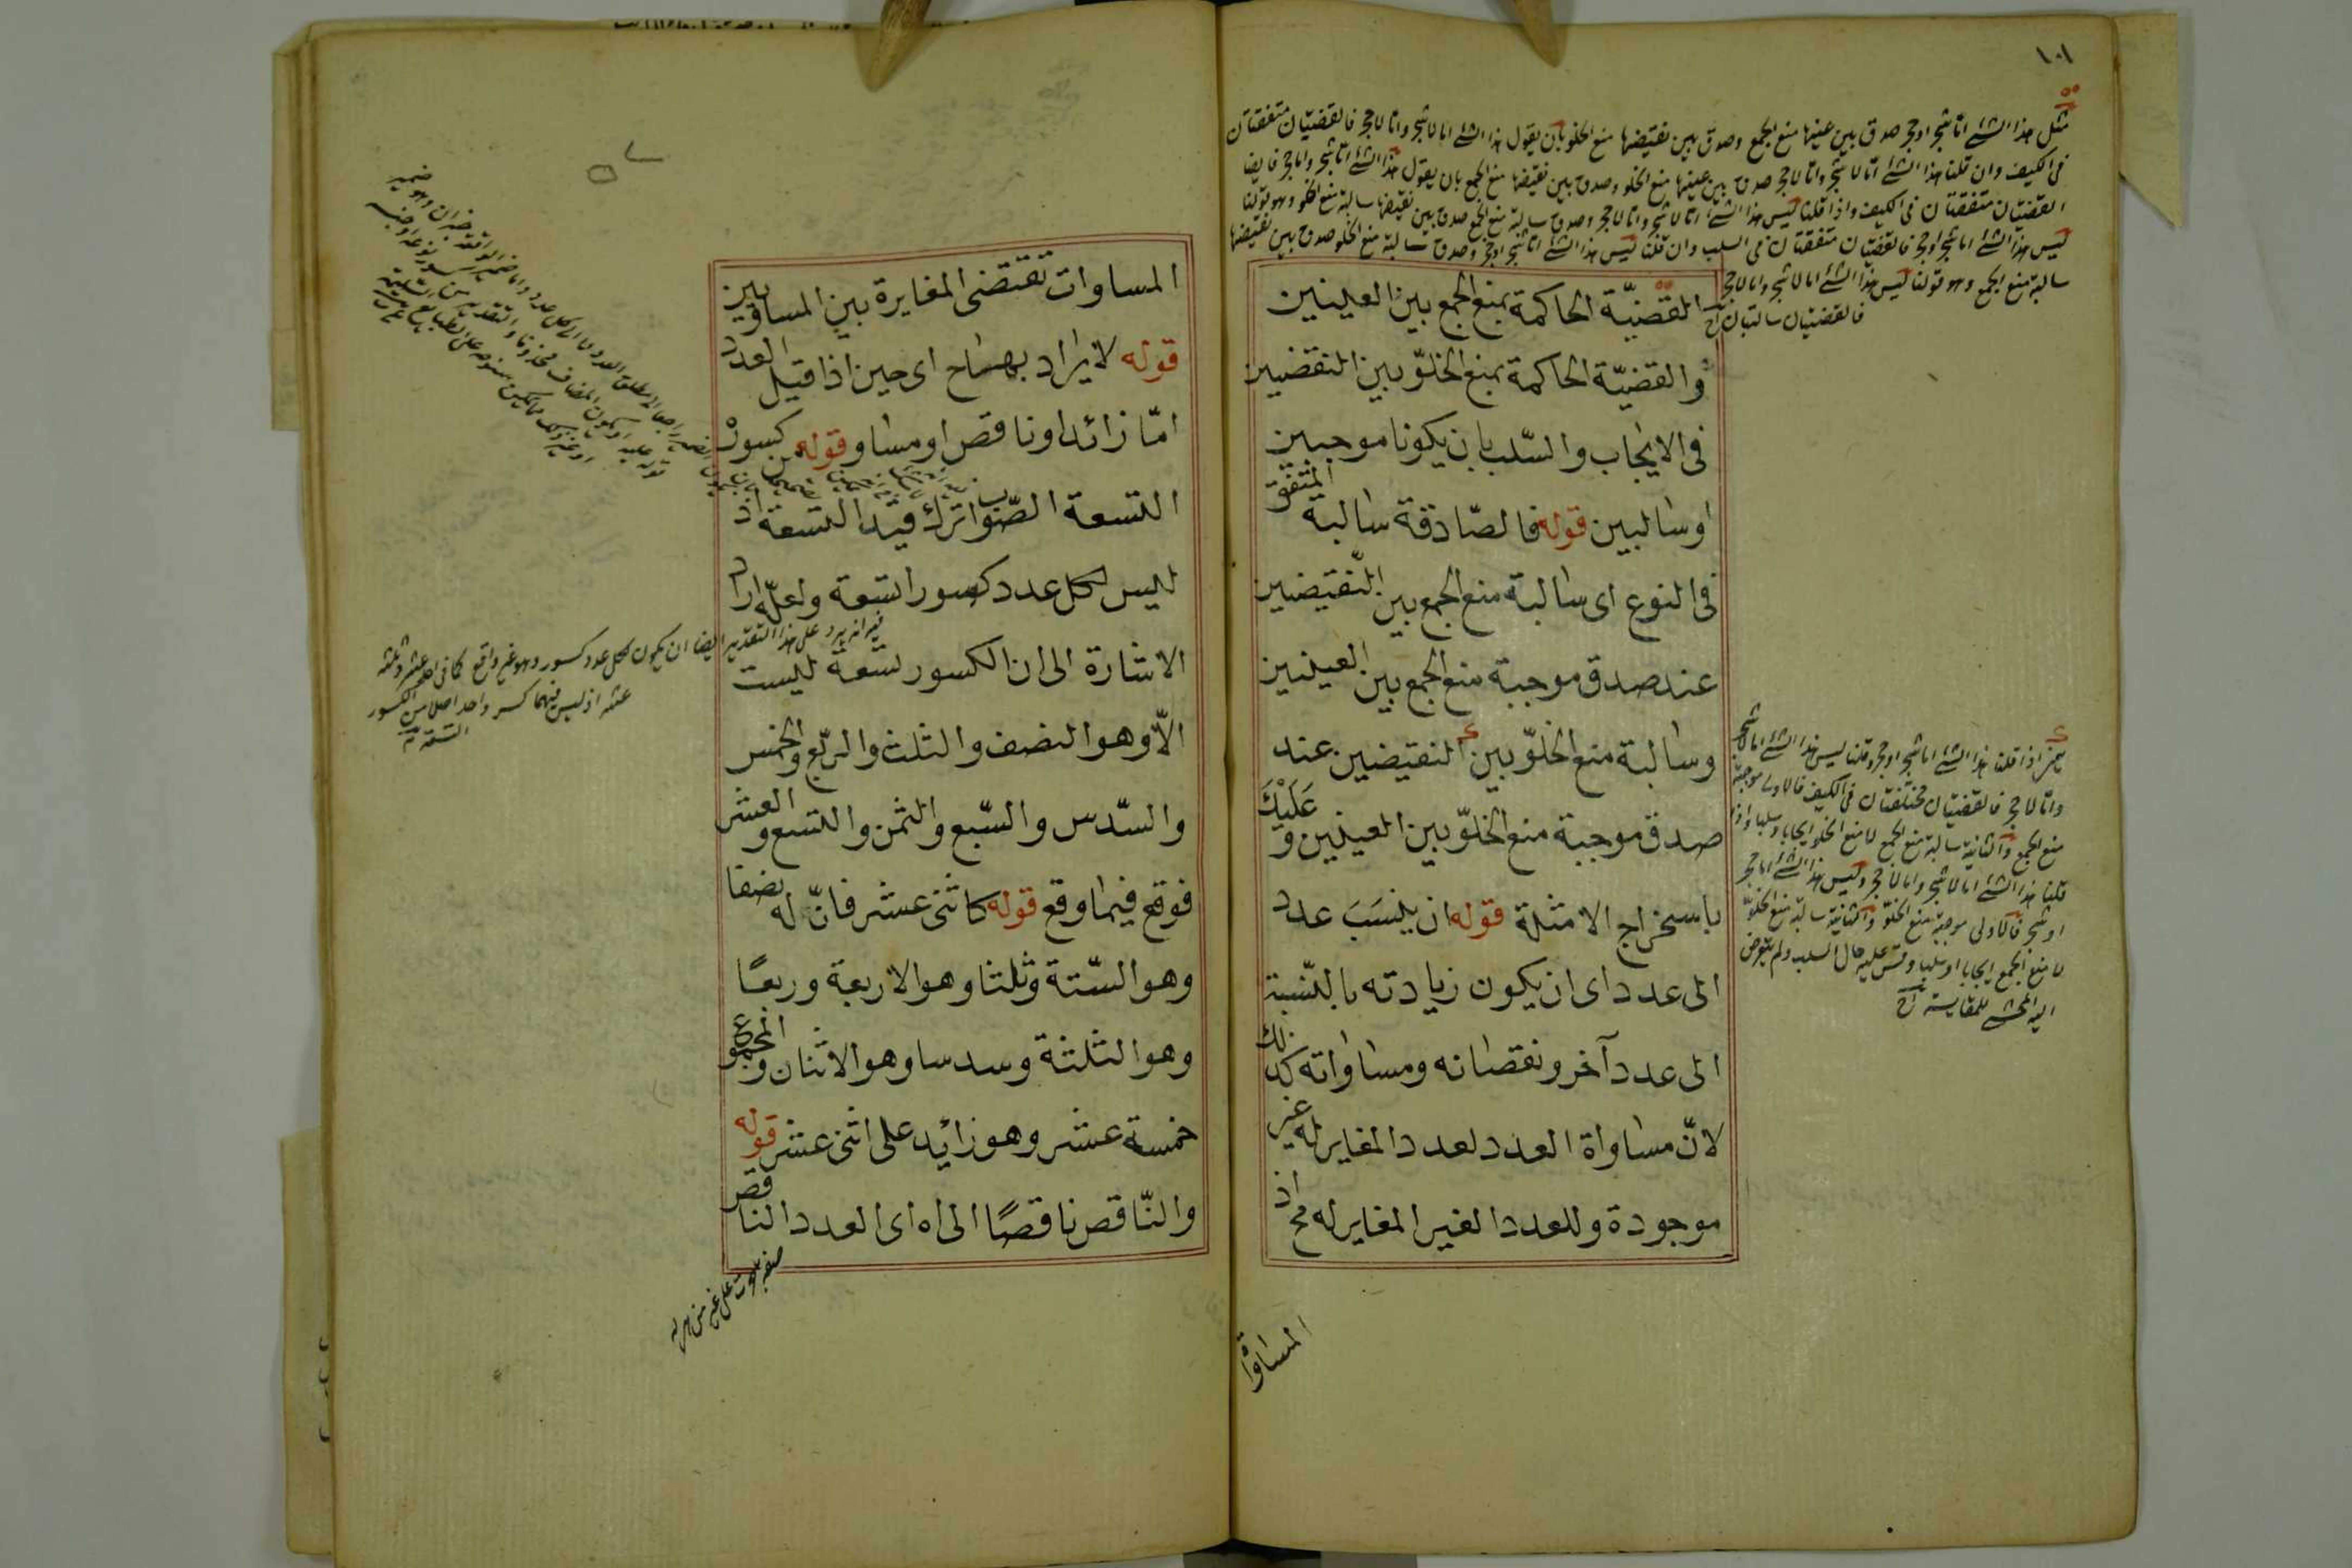 ١٠١
مثل هذا الشئ اما شجر او حجر صدق بين عينها منع الجمع وصدق بين نقيضها منع الخلو بان يقول هذا الشئ اما لا شجر واما لا حجر فالقضيتان متفقتان
في الكيف وان قلنا هذا الشئ اما لا شجر واما لا حجر صدق بين عينها منع الخلو وصدق بين نقيضها منع الجمع بان يقول هذا الشئ اما شجر واما حجر فايضا
القضيتان متفقتان في الكيف واذا قلنا ليس هذا الشئ اما لا شجر واما لا حجر وصدق سالبة منع الجمع صدق بين نقيضها سالبة منع الخلو وهو قولنا
ليس هذا الشئ اما شجر او حجر فالقضيتان متفقتان في السلب وان قلنا ليس هذا الشئ اما شجر او حجر وصدق سالبة منع الخلو صدق بين نقيضها
سالبة منع الجمع وهو قولنا ليس هذا الشئ اما لا شجر واما لا حجر
فالقضيتان سالبتان
القضيّة الحاكمة بمنع الجمع بين العينين
والقضيّة الحاكمة بمنع الخلوّ بين النقضيين
فى الايجاب والسّلب بان يكونا موجبين
او سالبين قوله فالصّادقة سالبة المتفق
فى النوع اى سالبة منع الجمع بين النّقيضين
عند صدق موجبة منع الجمع بين العينين
وسالبة منع الخلوّ بين النقيضين عند
صدق موجبة منع الخلوّ بين العينين و عَلَيْكَ
باسخراج الامثلة قوله ان ينسَبَ عدد
الى عدد اى ان يكون زيادته بالنّسبة
الى عدد آخر ونقصانه ومساواته كذلك
لانّ مساواة العدد لعدد المغاير له غير
موجودة وللعدد الغير المغاير له مح اذ
المساوا
يعنى اذا قلنا هذا الشئ اما شجر او حجر وقلنا ليس هذا الشئ اما لا شجر
واما لا حجر فالقضيتان مختلفتان في الكيف فالاولى موجبة
منع الجمع والثانية سالبة منع الجمع لا منع الخلو ايجابا وسلبا واذا
قلنا هذا الشئ اما لا شجر واما لا حجر وليس هذا الشئ اما حجر
او شجر فالاولى موجبة منع الخلوّ والثانية سالبة منع الخلوّ
لا منع الجمع ايجابا او سلبا وقس عليه حال السلب ولم يتعرض
اليه المحشى للمقايسة
المساوات تقتضى المغايرة بين المساويين
قوله لا يراد بهراح اى حين اذا قيل العدد
امّا زائد او ناقص او مساو قوله من كسور
التسعة الصّواب ترك قيد التسعة اذ
ليس لكل عدد كسور التسعة ولعلّه اراد
الاشارة الى ان الكسور تسعة ليست
الّا وهو النصف والثلث والرّبع والخمس
والسّدس والسّبع والثمن والتسع والعشر
فوقع فيما وقع قوله كاثنى عشر فانّ له نصفا
وهو السّتة وثلثا وهو الاربعة وربعًا
وهو الثلثة وسدسا وهو الاثنان والمجموع
خمسة عشر وهو زائد على اثنى عشر قوله
والنّاقص ناقصًا الى اه اى العدد الناقص
فيه انه يرد على هذا التقدير ايضا ان يكون لكل عدد كسور وهو غير واقع كما في احد عشر وثلثة
عشر اذ ليس فيهما كسر واحد اصلا من الكسور
التسعة